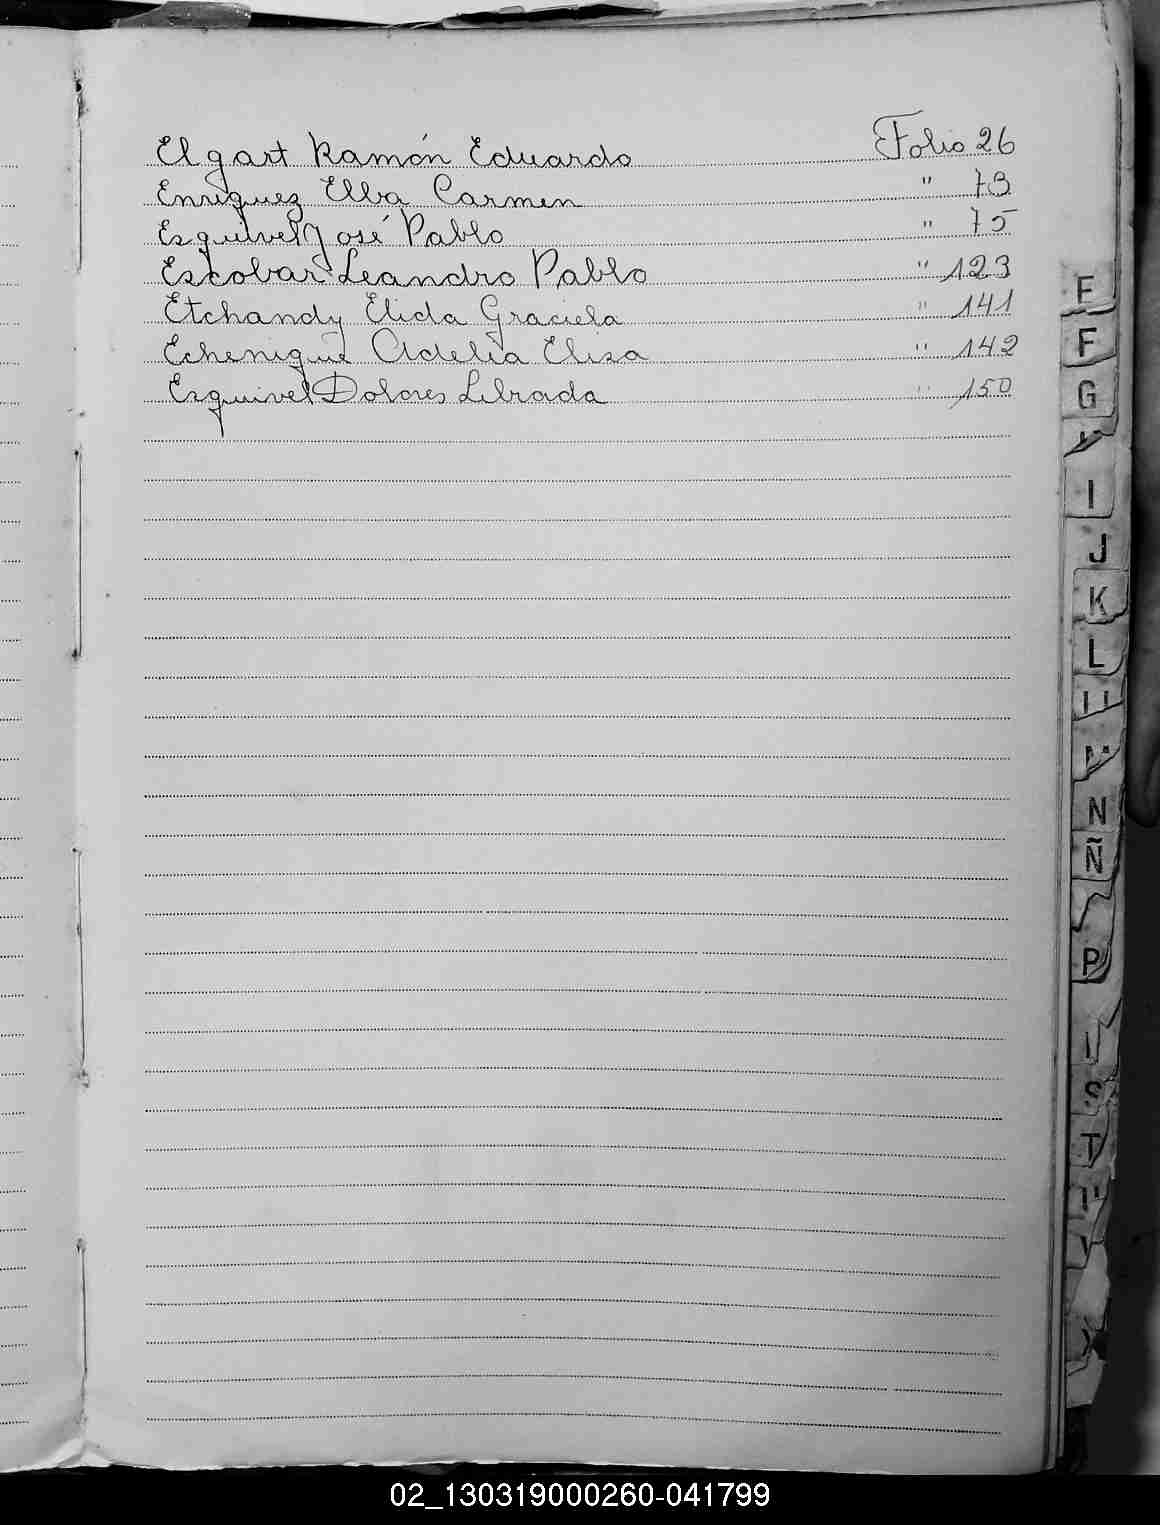 Elgart Ramón Eduardo Folio 26
Enriquez Elba Carmen " 73
Esquivel José Pablo " 75
Escobar Leandro Pablo " 123
Etchandy Elida Graciela " 141
Echenique Adelia Elisa " 142
Esquivel Dolores Librada " 150
E
F
G
I
J
K
L
Ll
M
N
Ñ
P
S
T
02_130319000260-041799